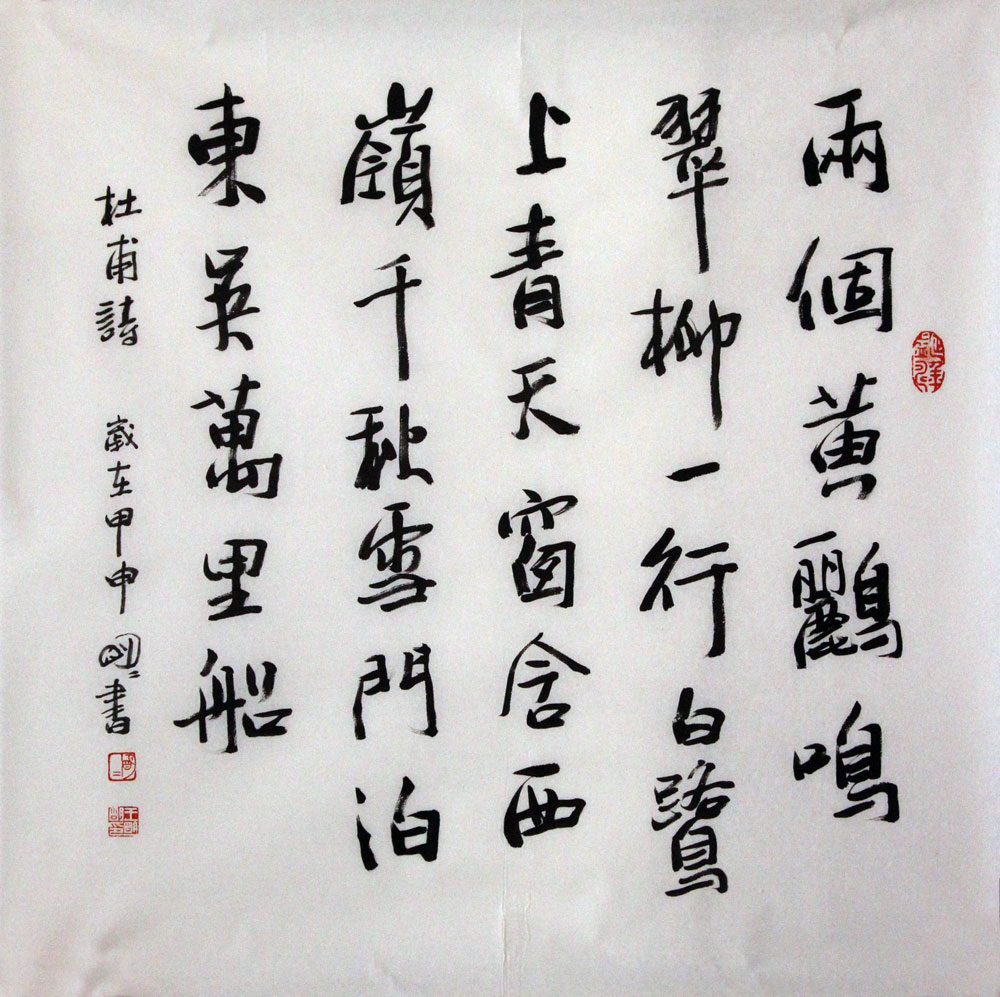 兩個黃鸝鳴
翠柳一行白鷺
上青天窗含西
嶺千秋雪門泊
東吳萬里船
杜甫詩 歲在甲申 明明書